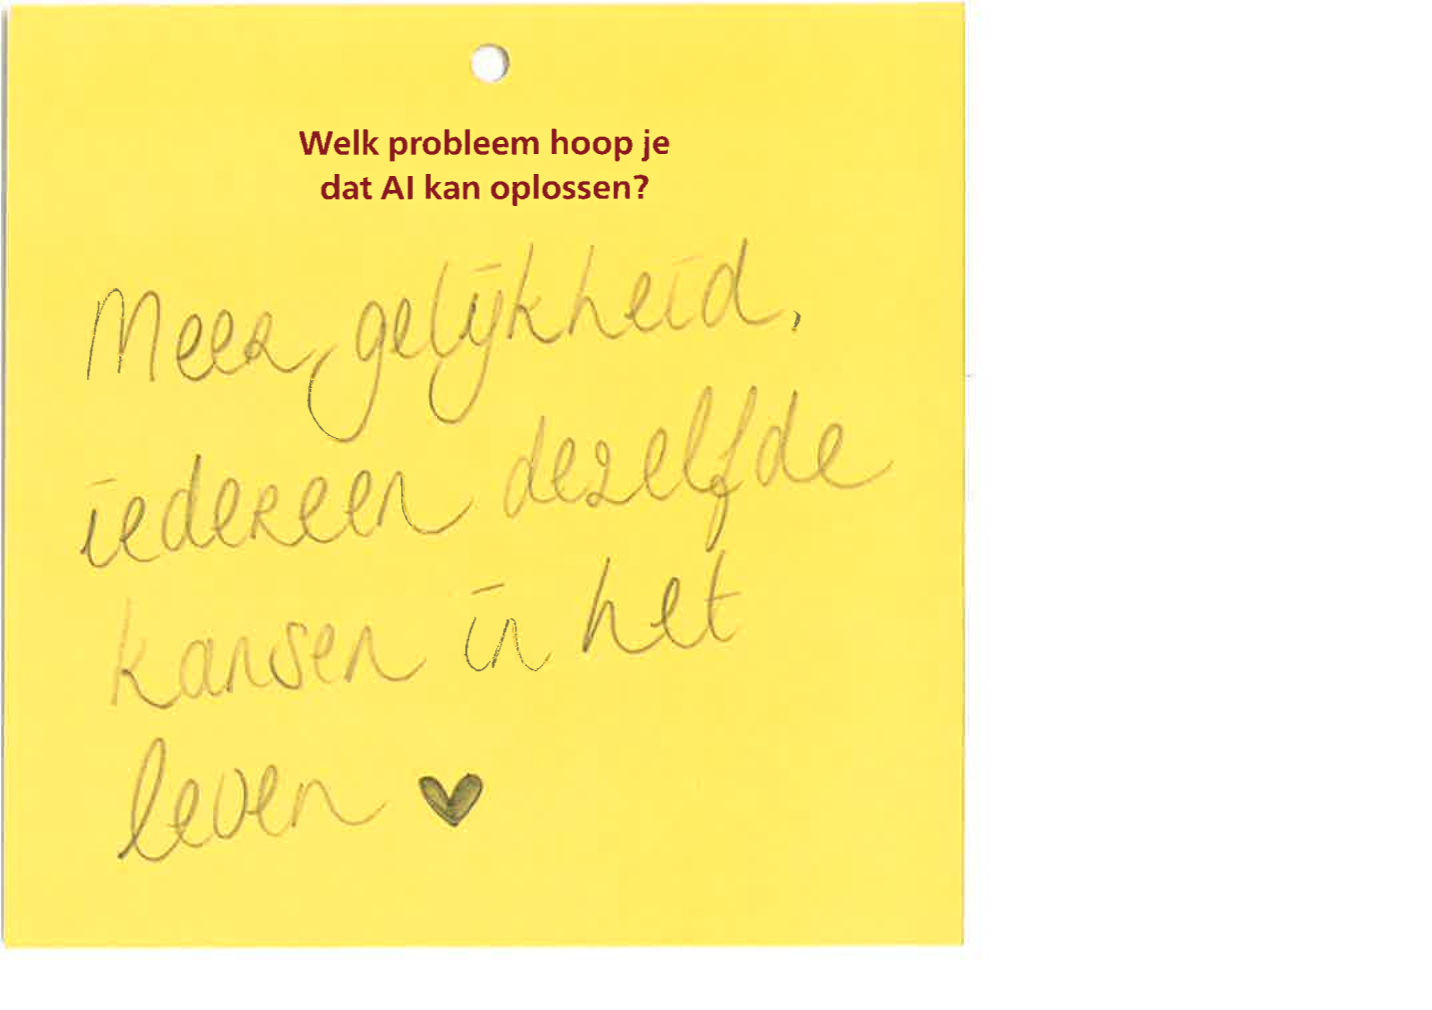 Welk probleem hoop je
dat AI kan oplossen?
Meer gelijkheid,
iedereen dezelfde
kansen in het
leven ♥